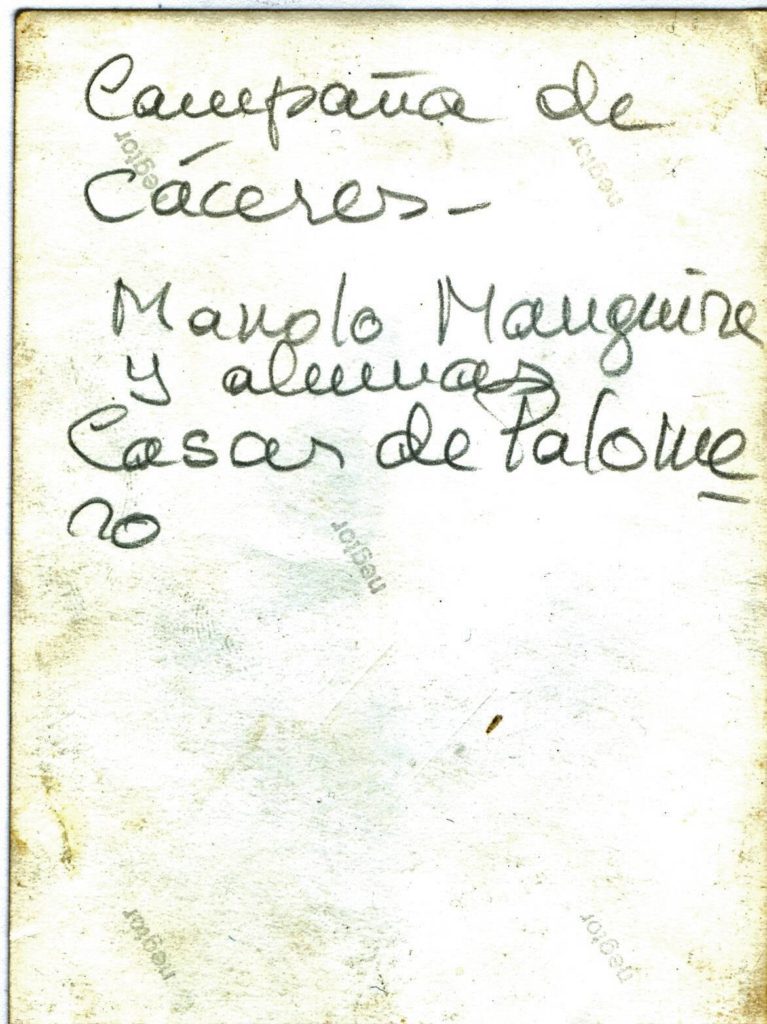 Campaña de
Cáceres-
Manolo Manguire
y alumnas
Casar de Palome
ro
negtor
negtor
negtor
negtor
negtor